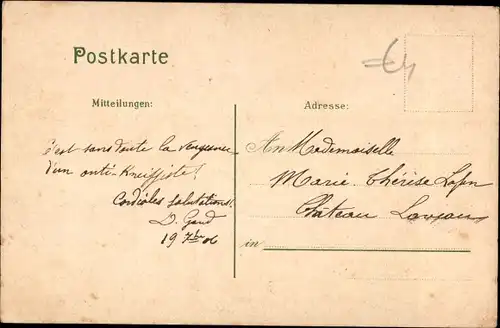 Postkarte
Mitteilungen:
Adresse:
c'est sans doute la vengeance
d'un anti-Kreiffiste!
Cordiales salutations.
D. Gand
19 7bre 06
An Mademoiselle
Marie Thérèse
Château
in